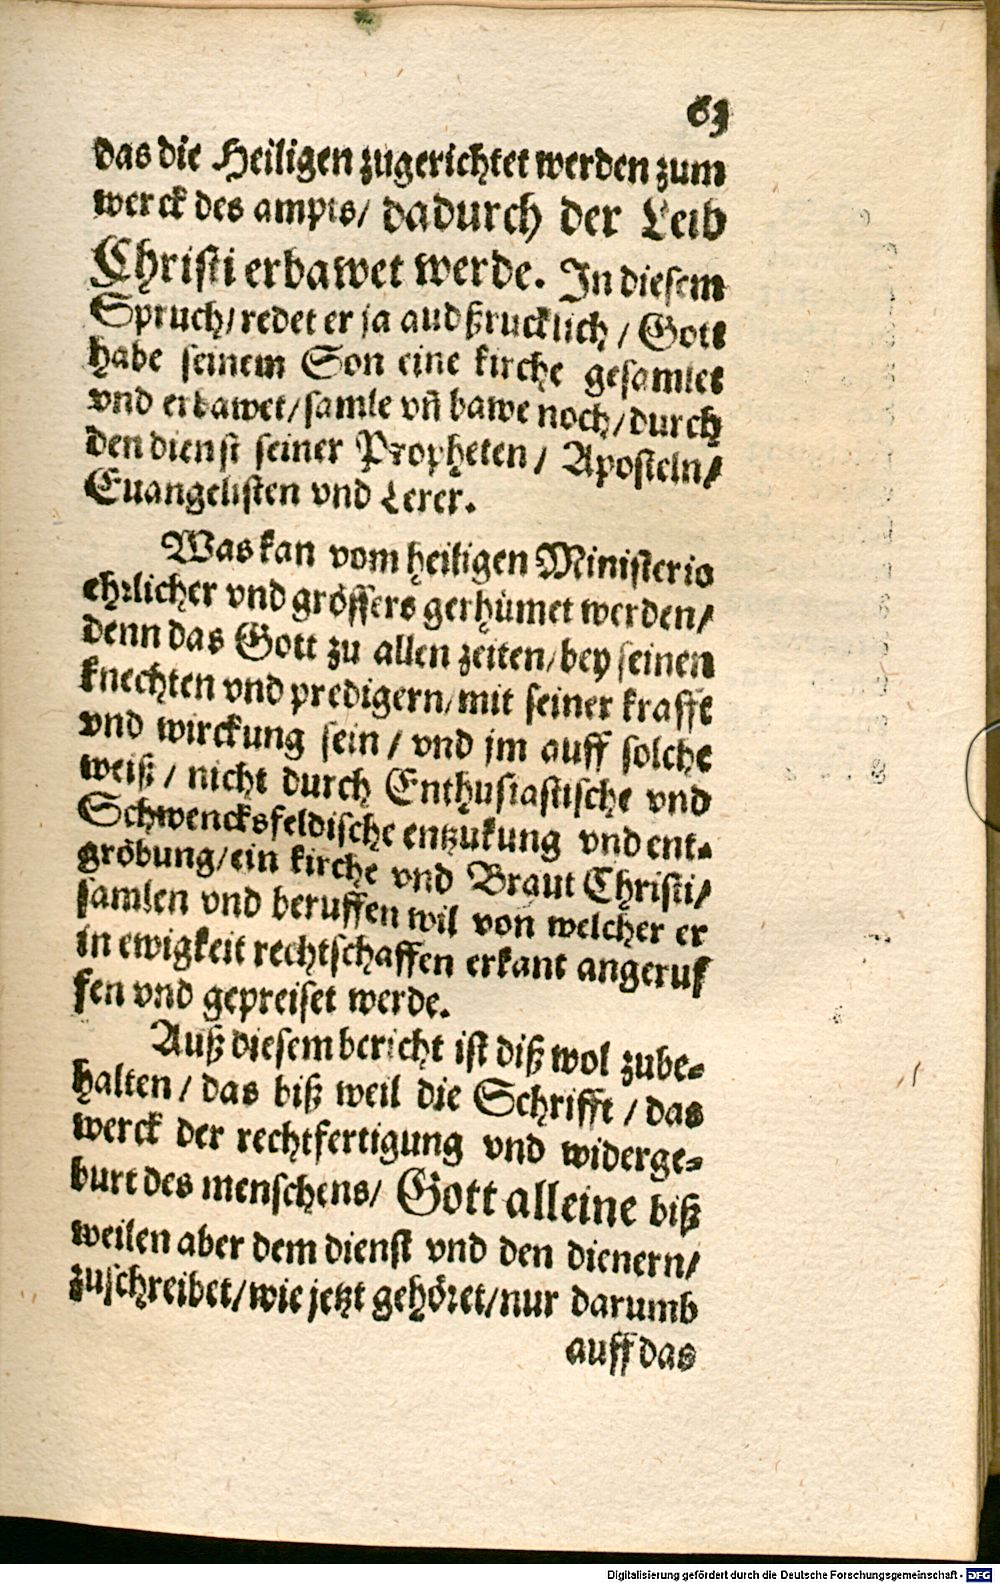 63
das die Heiligen zugerichtet werden zum
werck des ampts/ dadurch der Leib
Christi erbawet werde. In diesem
Spruch/ redet er ja außdrucklich / Gott
habe seinem Son eine kirche gesamlet
vnd erbawet/ samle vñ bawe noch/ durch
den dienst seiner Propheten / Aposteln/
Euangelisten vnd Lerer.
Was kan vom heiligen Ministerio
ehrlicher vnd grössers gerhümet werden/
denn das Gott zu allen zeiten/ bey seinen
knechten vnd predigern/ mit seiner krafft
vnd wirckung sein / vnd jm auff solche
weiß / nicht durch Enthusiastische vnd
Schwencksfeldische entzukung vnd ent-
gröbung/ ein kirche vnd Braut Christi/
samlen vnd beruffen wil von welcher er
in ewigkeit rechtschaffen erkant angeruf
fen vnd gepreiset werde.
Auß diesem bericht ist diß wol zube-
halten / das biß weil die Schrifft / das
werck der rechtfertigung vnd widerge-
burt des menschens/ Gott alleine biß
weilen aber dem dienst vnd den dienern/
zuschreibet/ wie jetzt gehöret/ nur darumb
auff das
Digitalisierung gefördert durch die Deutsche Forschungsgemeinschaft - DFG